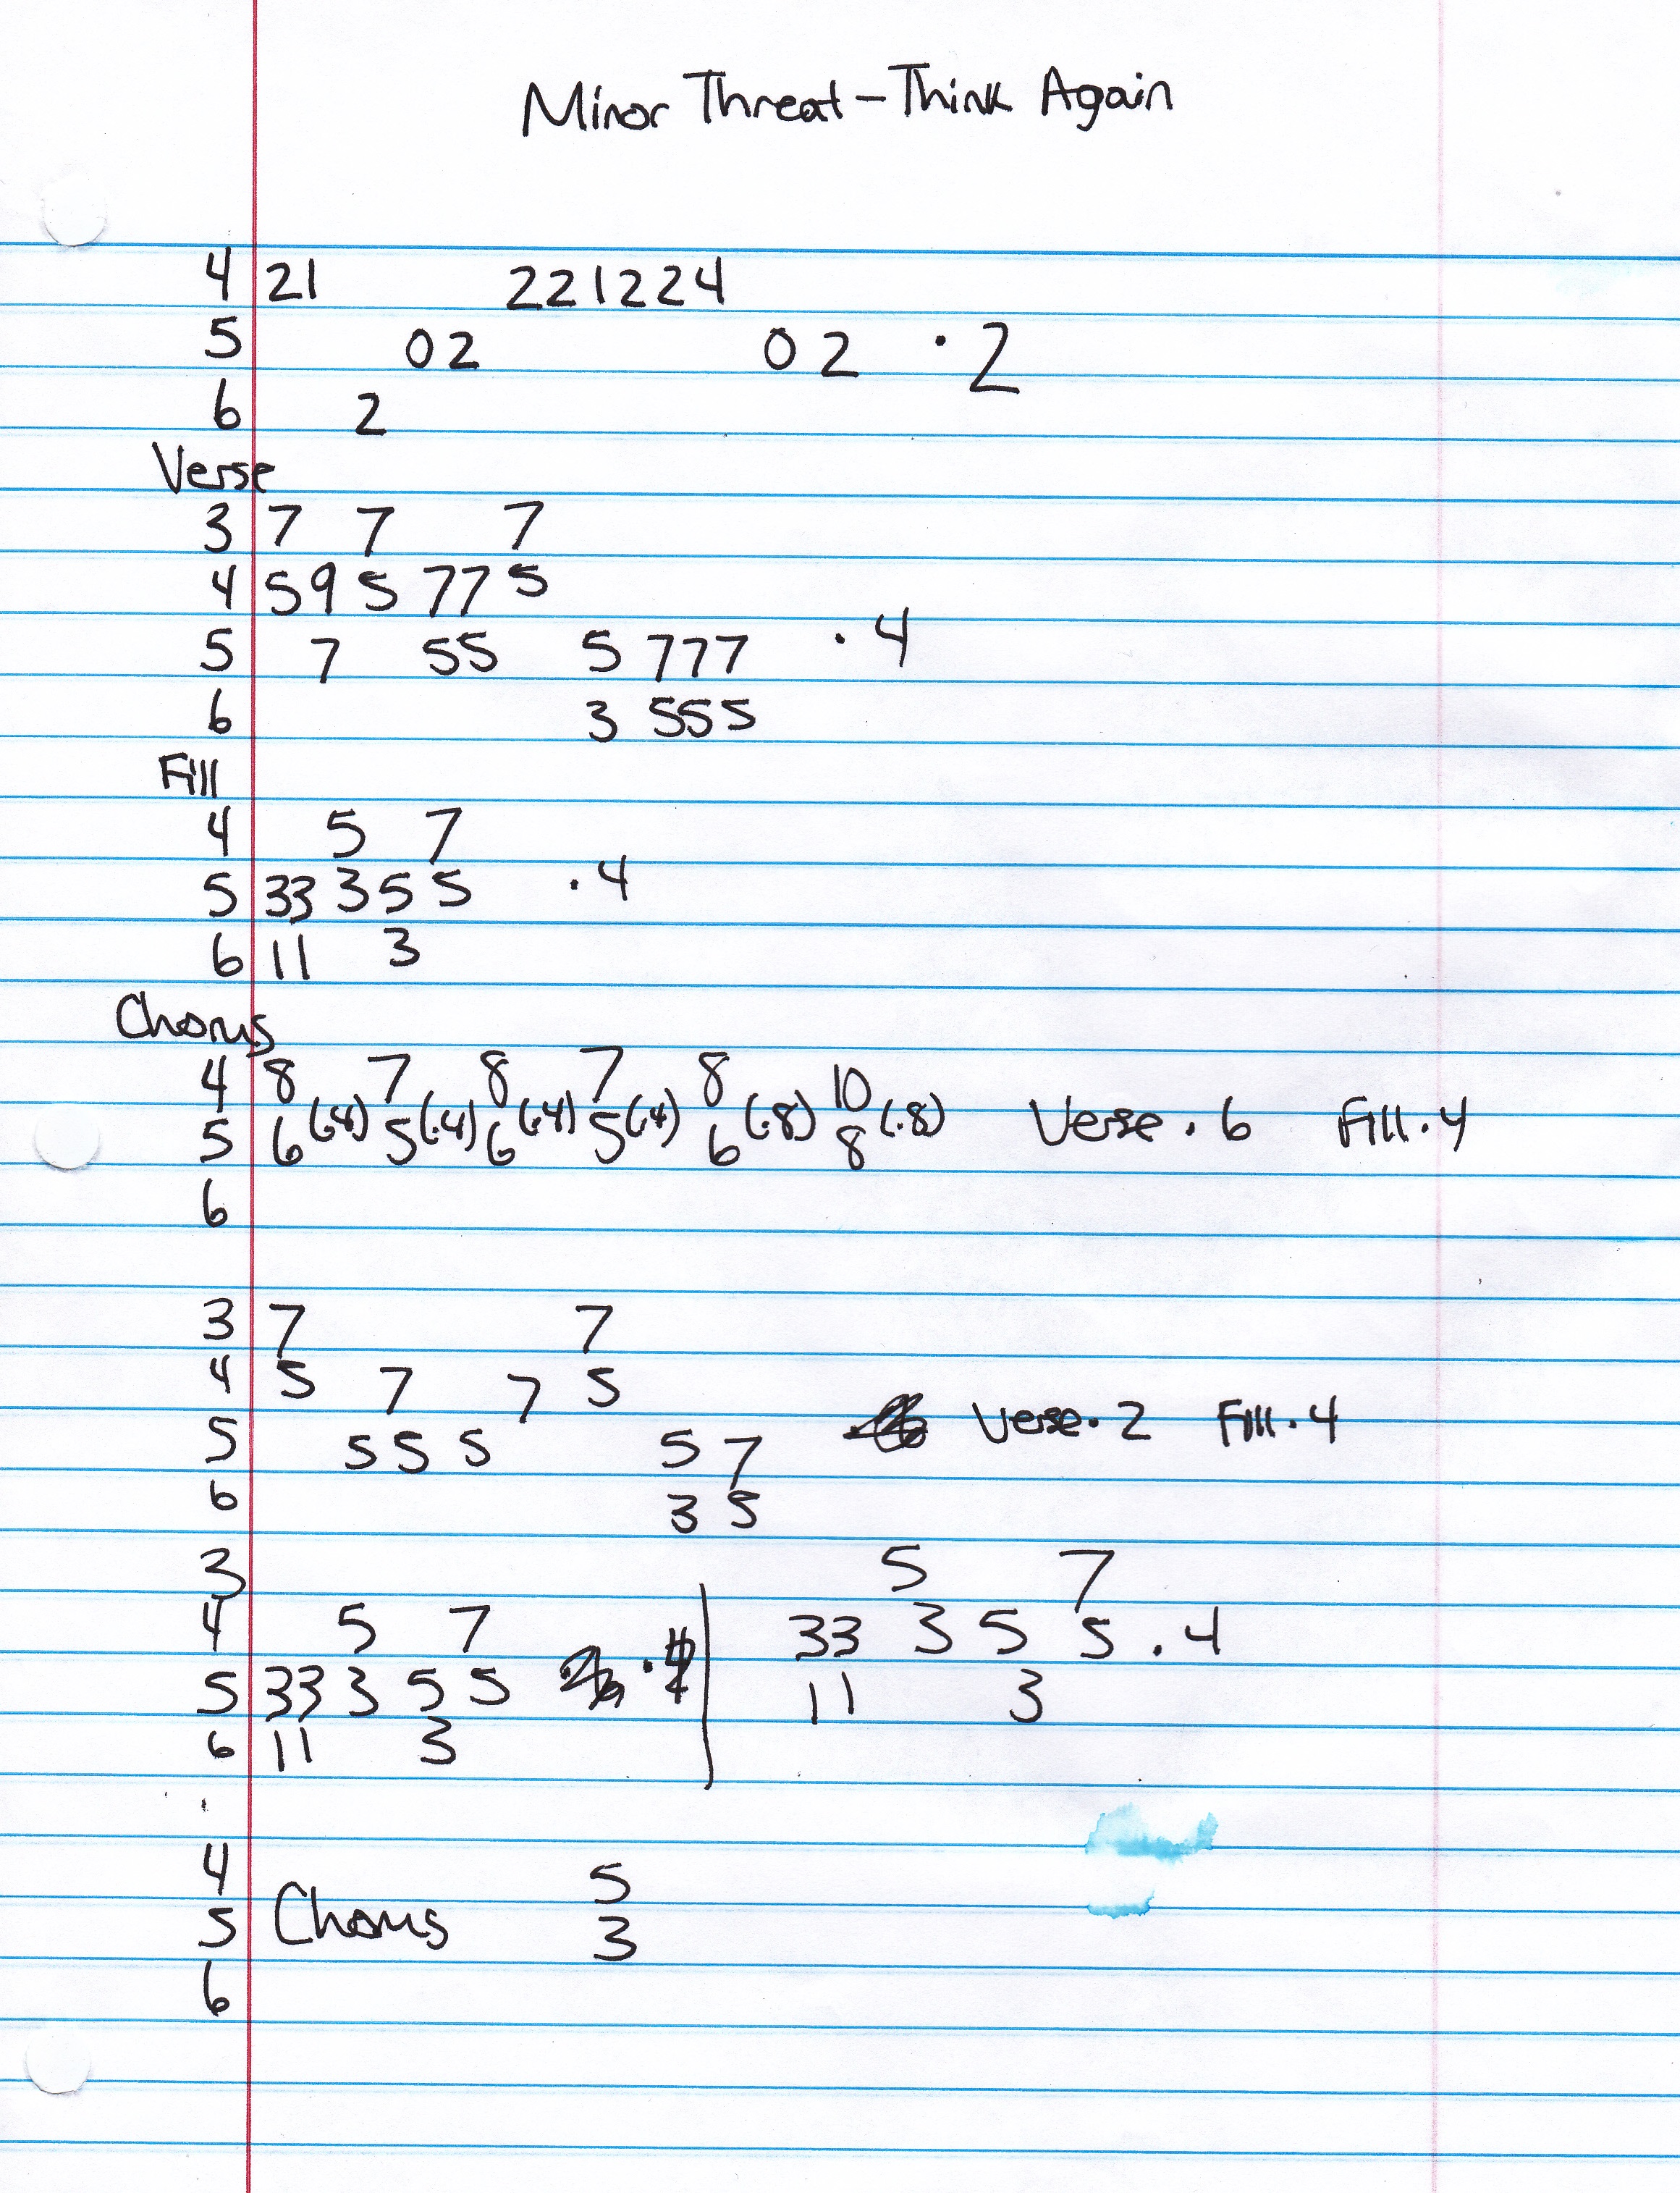 Minor Threat - Think Again
4 21 221224
5 02 02 · 2
6 2
Verse
3 7 7 7
4 59 5 77 5
5 7 55 5 777 · 4
6 3 555
Fill
4 5 7
5 33 3 5 5 · 4
6 11 3
Chorus
4 8 7 8 7 8 10
5 6 (·4) 5 (·4) 6 (·4) 5 (·4) 6 (·8) 8 (·8) Verse · 6 Fill · 4
6
3 7 7
4 5 7 7 5
5 5 5 5 5 7 Verse · 2 Fill · 4
6 3 5
3 5 7
4 5 7 33 3 5 5 · 4
5 33 3 5 5 11 3
6 11 3
4 5
5 Chorus 3
6